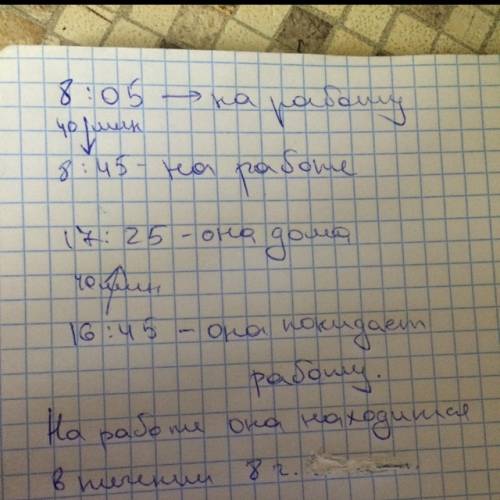 8:05 → на работу
40 мин
8:45 - на работе
17:25 - она дома
40 мин
16:45 - она покидает
работу.
На работе она находится
в течении 8 ч.